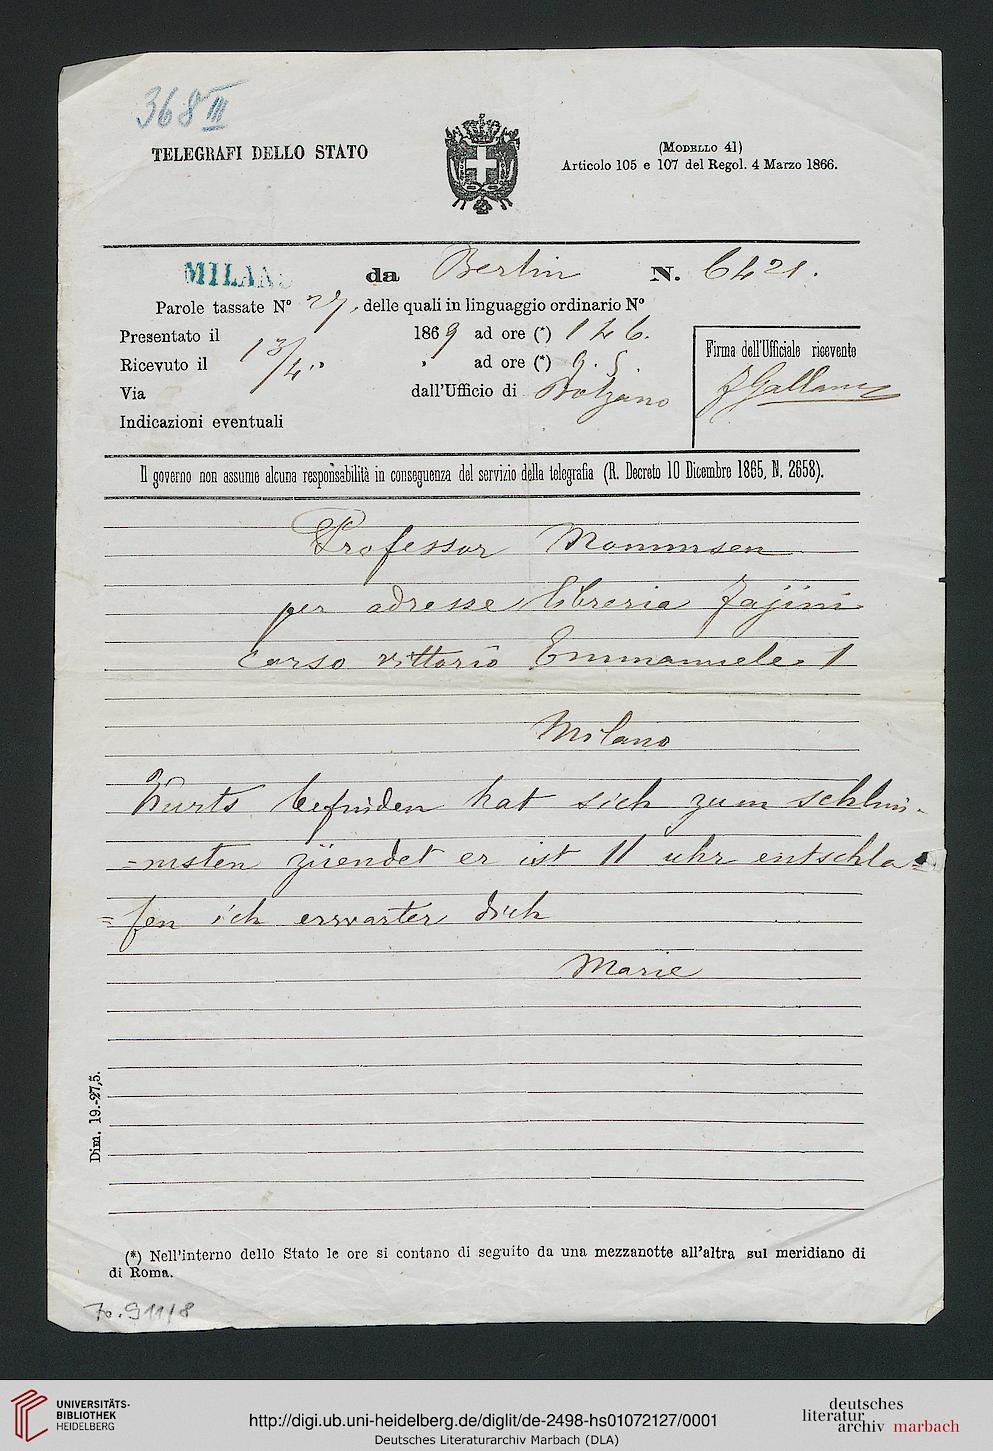 368 III
TELEGRAFI DELLO STATO
(MODELLO 41)
Articolo 105 e 107 del Regol. 4 Marzo 1866.
MILANO da Berlin N. 6421.
Parole tassate N° 27, delle quali in linguaggio ordinario N°
Presentato il 1869 ad ore (*) 1 46.
Ricevuto il 13/4 " " ad ore (*) 9.5.
Via dall'Ufficio di Bolzano
Indicazioni eventuali
Firma dell'Ufficiale ricevente
Il governo non assume alcuna responsabilità in conseguenza del servizio della telegrafia (R. Decreto 10 Dicembre 1865, N. 2658).
Professor Mommsen
per adresse libreria Jajini
Corso vittorio Emmanuele 1
Milano
Kurts befinden hat sich zum schlim-
=msten züendet er ist 11 uhr entschla=
=fen ich erwarter dich
Marie
Dim. 19.-27,5.
(*) Nell'interno dello Stato le ore si contano di seguito da una mezzanotte all'altra sul meridiano di
di Roma.
70.911/8
UNIVERSITÄTS-
BIBLIOTHEK
HEIDELBERG
http://digi.ub.uni-heidelberg.de/diglit/de-2498-hs01072127/0001
Deutsches Literaturarchiv Marbach (DLA)
deutsches
literatur
archiv marbach